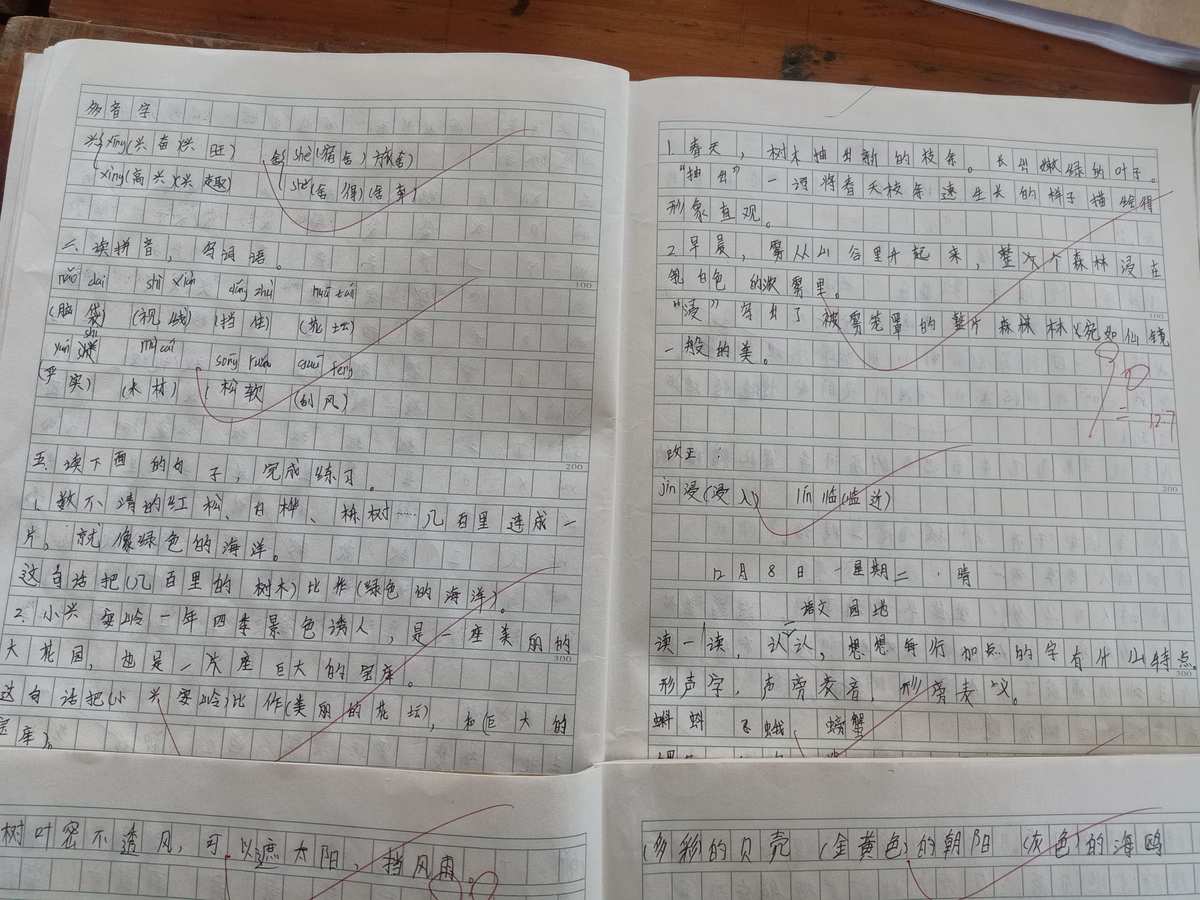 多音字
兴 xīng(兴奋)(兴旺) 舍 shè(宿舍)
xìng(高兴)(兴趣) shě(舍得)(舍弃)
二、读拼音，写词语。
nǎo dai shì xiàn dǎng zhù huā tán
(脑袋) (视线) (挡住) (花坛)
yán shi mù cái sōng ruǎn guā fēng
(严实) (木材) (松软) (刮风)
五、读下面的句子，完成练习。
1.数不清的红松、白桦、栎树……几百里连成一
片，就像绿色的海洋。
这句话把(几百里的树木)比作(绿色的海洋)。
2.小兴安岭一年四季景色诱人，是一座美丽的
大花园，也是一片座巨大的宝库。
这句话把(小兴安岭)比作(美丽的花坛)，和(巨大的
宝库)。
1.春天，树木抽出新的枝条。长出嫩绿的叶子。
"抽出"一词将春天枝条速生长的样子描绘得
形象直观。
2.早晨，雾从山谷里升起来，整个森林浸在
乳白色的浓雾里。
"浸"写出了被雾笼罩的整片森林宛如仙镜
一般的美。
12.7
改正：
jìn浸(浸入) lín临(临近)
12月8日 星期二 晴
语文园地
读一读，认认，想想每行加点的字有什么特点。
形声字，声旁表音，形旁表义。
蝌蚪 飞蛾 螃蟹
树叶密不透风，可以遮太阳，挡风雨。
(多彩的贝壳 (金黄色)的朝阳 (灰色)的海鸥